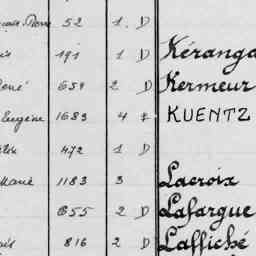 52 1. D
191 1 D Kéranga
René 659 2 D Kermeur
Eugène 1683 4 KUENTZ
472 1 D
Marie 1183 3 Lacroix
655 2 D Lafargue
816 2 D Laffiché